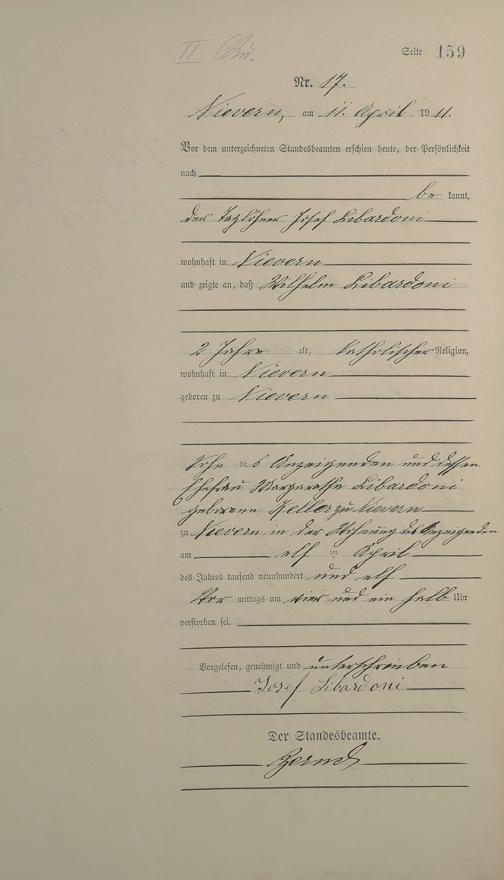 II
Seite 159
Nr. 17.
Nievern, am 11. April 1911.
Vor dem unterzeichneten Standesbeamten erschien heute, der Persönlichkeit
nach
be kannt,
der Taglöhner Josef Libardoni
wohnhaft in Nievern
und zeigte an, daß Wilhelm Libardoni
2 Jahre alt, katholischer Religion,
wohnhaft in Nievern
geboren zu Nievern
Sohn des Anzeigenden und dessen
Ehefrau Margarethe Libardoni
geborene Keller zu Nievern
zu Nievern in der Wohnung des Anzeigenden
am elf ten April
des Jahres tausend neunhundert und elf
Vor mittags um vier und ein halb Uhr
verstorben sei.
Vorgelesen, genehmigt und unterschrieben
Josef Libardoni
Der Standesbeamte.